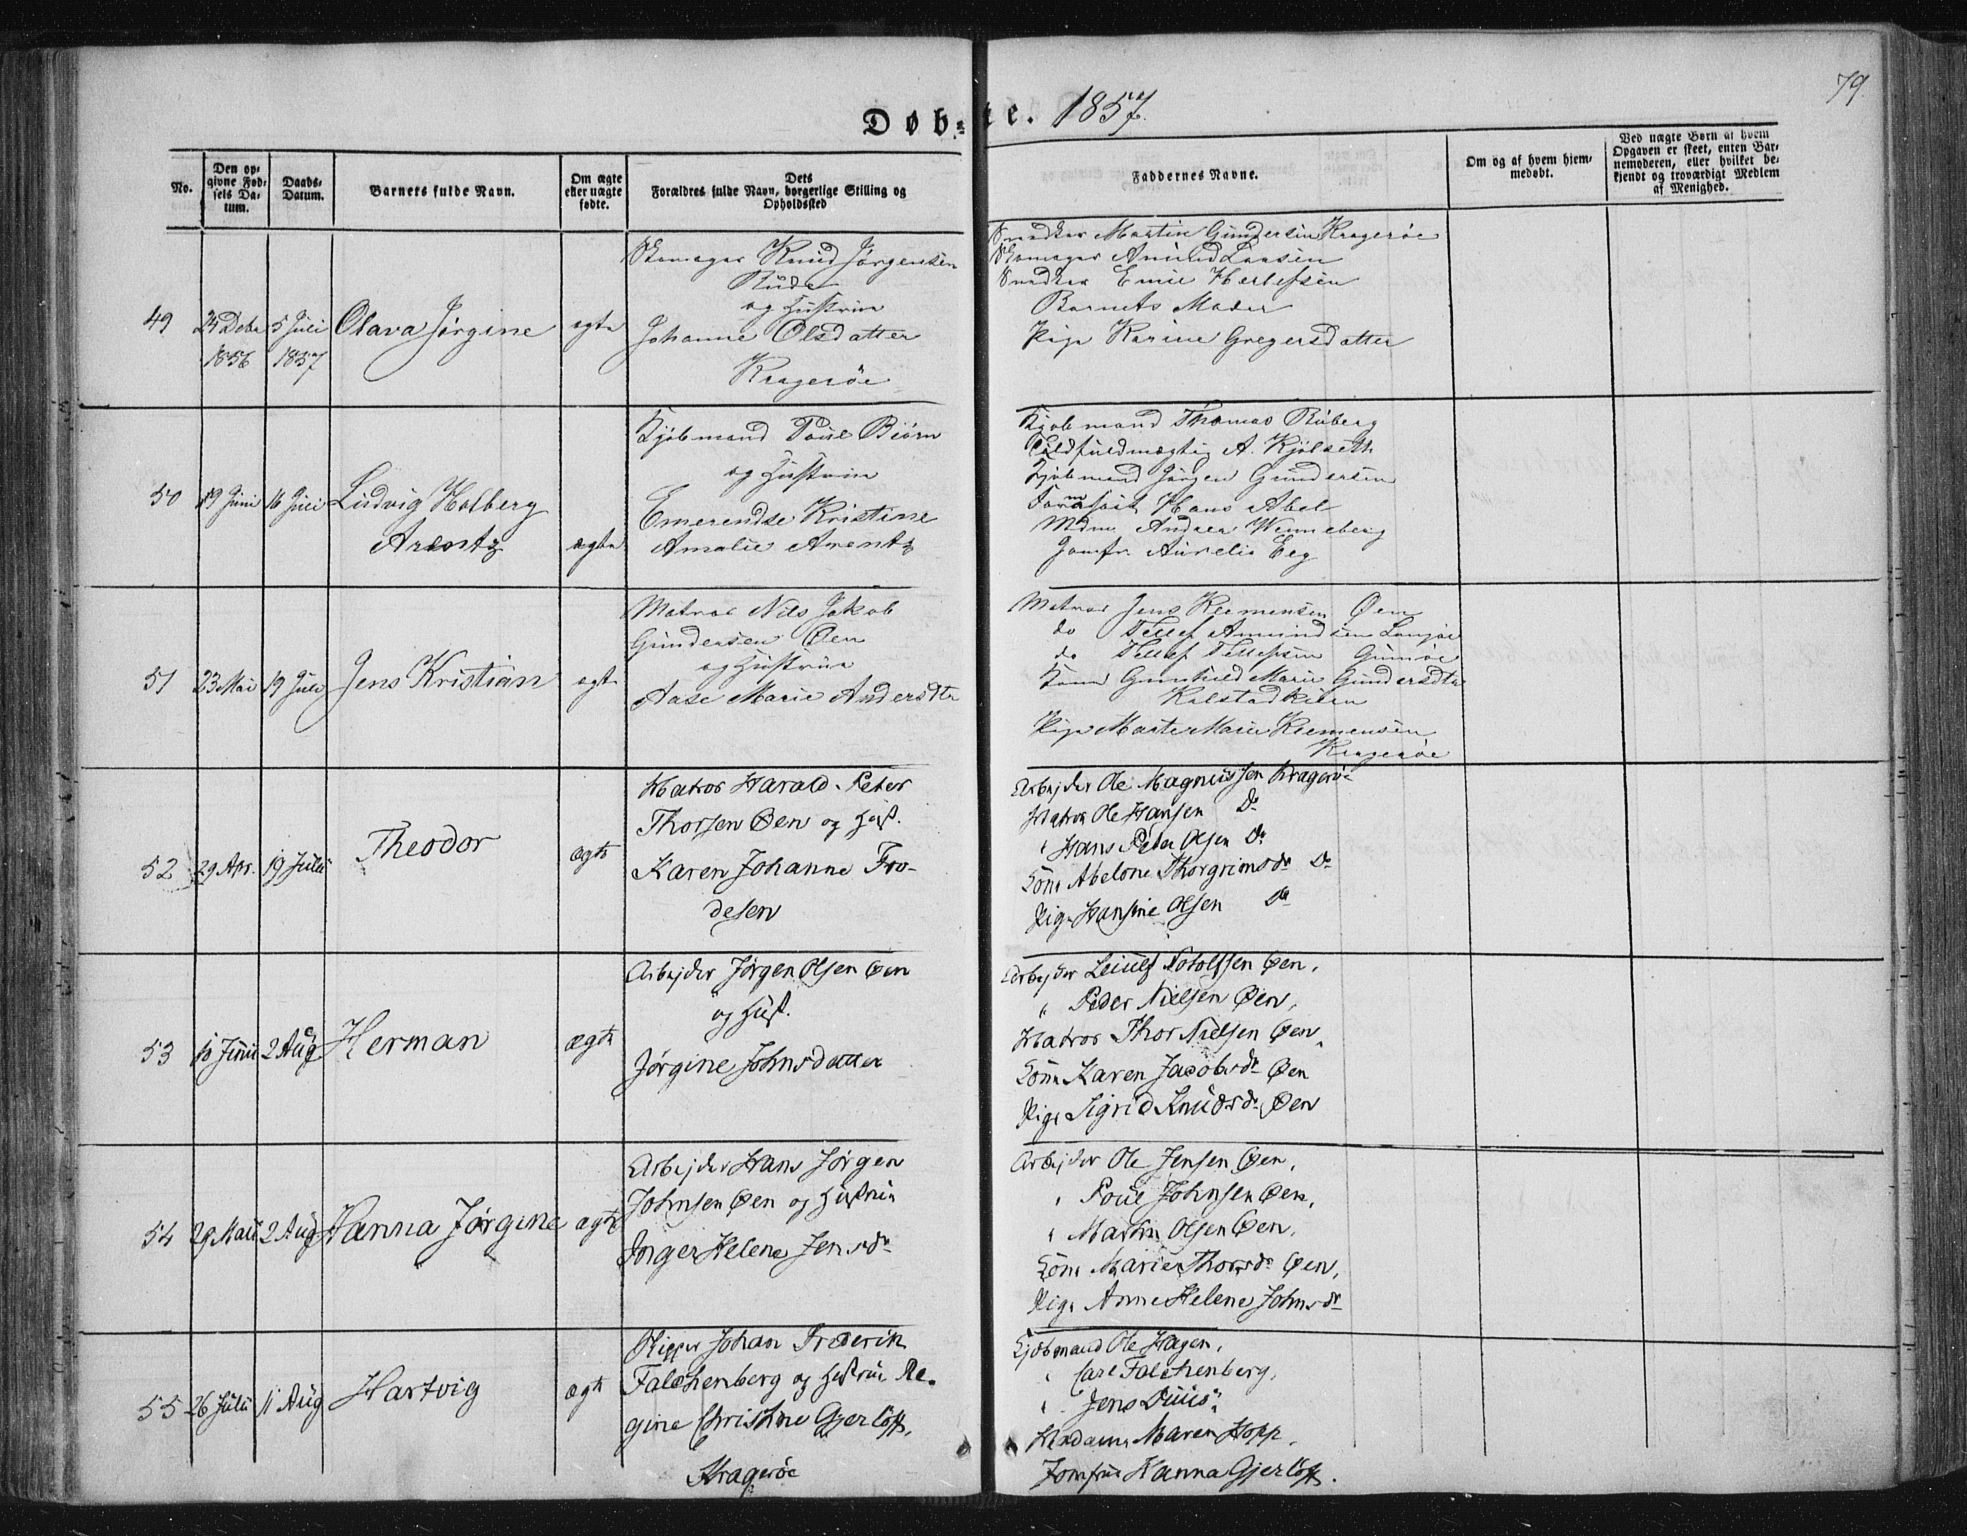 79
Døb-te. 1857.
No.
Den opgivne Fødsels Datum.
Daabs-Datum.
Barnets fulde Navn.
Om ægte eller uægte fødte.
Dets Forældres fulde Navn, borgerlige Stilling og Opholdssted
Faddernes Navne.
Om og af hvem hjemmedøbt.
Ved uægte Børn at hvem Opgaven er skeet, enten Barnemoderen, eller hvilket bekjendt og troværdigt Medlem af Menighed.
49
24 Debr 1856
5 Juli 1857
Olava Jørgine
ægte
Skomager Knud Jørgensen
Rude
og Hustrue
Johanne Olsdatter
Kragerøe
Snedker Martin Gundersen Kragerøe
Skomager Amund Larsen
Snedker Emil Herlefsen
Barnets Moder
Pige Karine Gregersdatter
50
19 Juni
16 Juli
Ludvig Holberg
Arentz
ægte
Kjøbmand Poul Biørn
og Hustrue
Emerendse Kristine
Amalie Arentz
Kjøbmand Thomas Biuberg
Toldfuldmægtig A. Kjølseth
Kjøbmand Jørgen Gundersen
Hans Abel
Mdm Andrea Wenneberg
Jomfr Aurelia Eeg
51
23 Mai
19 Juli
Jens Kristian
ægte
Matros Nils Jakob
Gundersen Øen
og Hustrue
Aase Marie Andersdtr
Matros Jens Klemensen Øen
do Tellef Amundsen Langøe
do Tellef Tellefsen Gumøe
Kone Gunhild Marie Gundersdtr
Kalstadkilen
Pige Marte Marie Klemensen
Kragerøe
52
29 Apr.
19 Julii
Theodor
ægte
Matros Harald Peter
Thorsen Øen og Hust.
Karen Johanne Fro-
desen
Arbejder Ole Magnussen Kragerøe
Matros Ole Hansen Do
" Hans Peter Olsen Do
Kone Abelone Thorgrimsdr Do
Pige Hansine Olsen Do
53
10 Junii
2 Aug
Herman
ægte
Arbejder Jørgen Olsen Øen
og Hust.
Jørgine Johnsdatter
Arbejder Leiulf Rolofssen Øen,
" Peder Nielsen Øen,
Matros Thor Nielsen Øen,
Kone Karen Jacobsdr Øen
Pige Sigrid Knudsdr Øen
54
29 Maii
2 Aug
Hanna Jørgine
ægte
Arbejder Hans Jørgen
Johnsen Øen og Hustrue
Inger Helene Jensdr
Arbejder Ole Jensen Øen,
" Poul Johnsen Øen,
" Martin Olsen Øen,
Kone Marie Thorsdr Øen,
Pige Anne Helene Johnsdr
55
26 Julii
11 Aug
Hartvig
ægte
Skipper Johan Frederik
Falchenberg og Hustrue Re-
gine Christine Gjerløff,
Kragerøe
Kjøbmand Ole Hagen,
" Carl Falchenberg,
" Jens Duus,
Madame Maren Hopp,
Jomfrue Hanna Gjerløff.